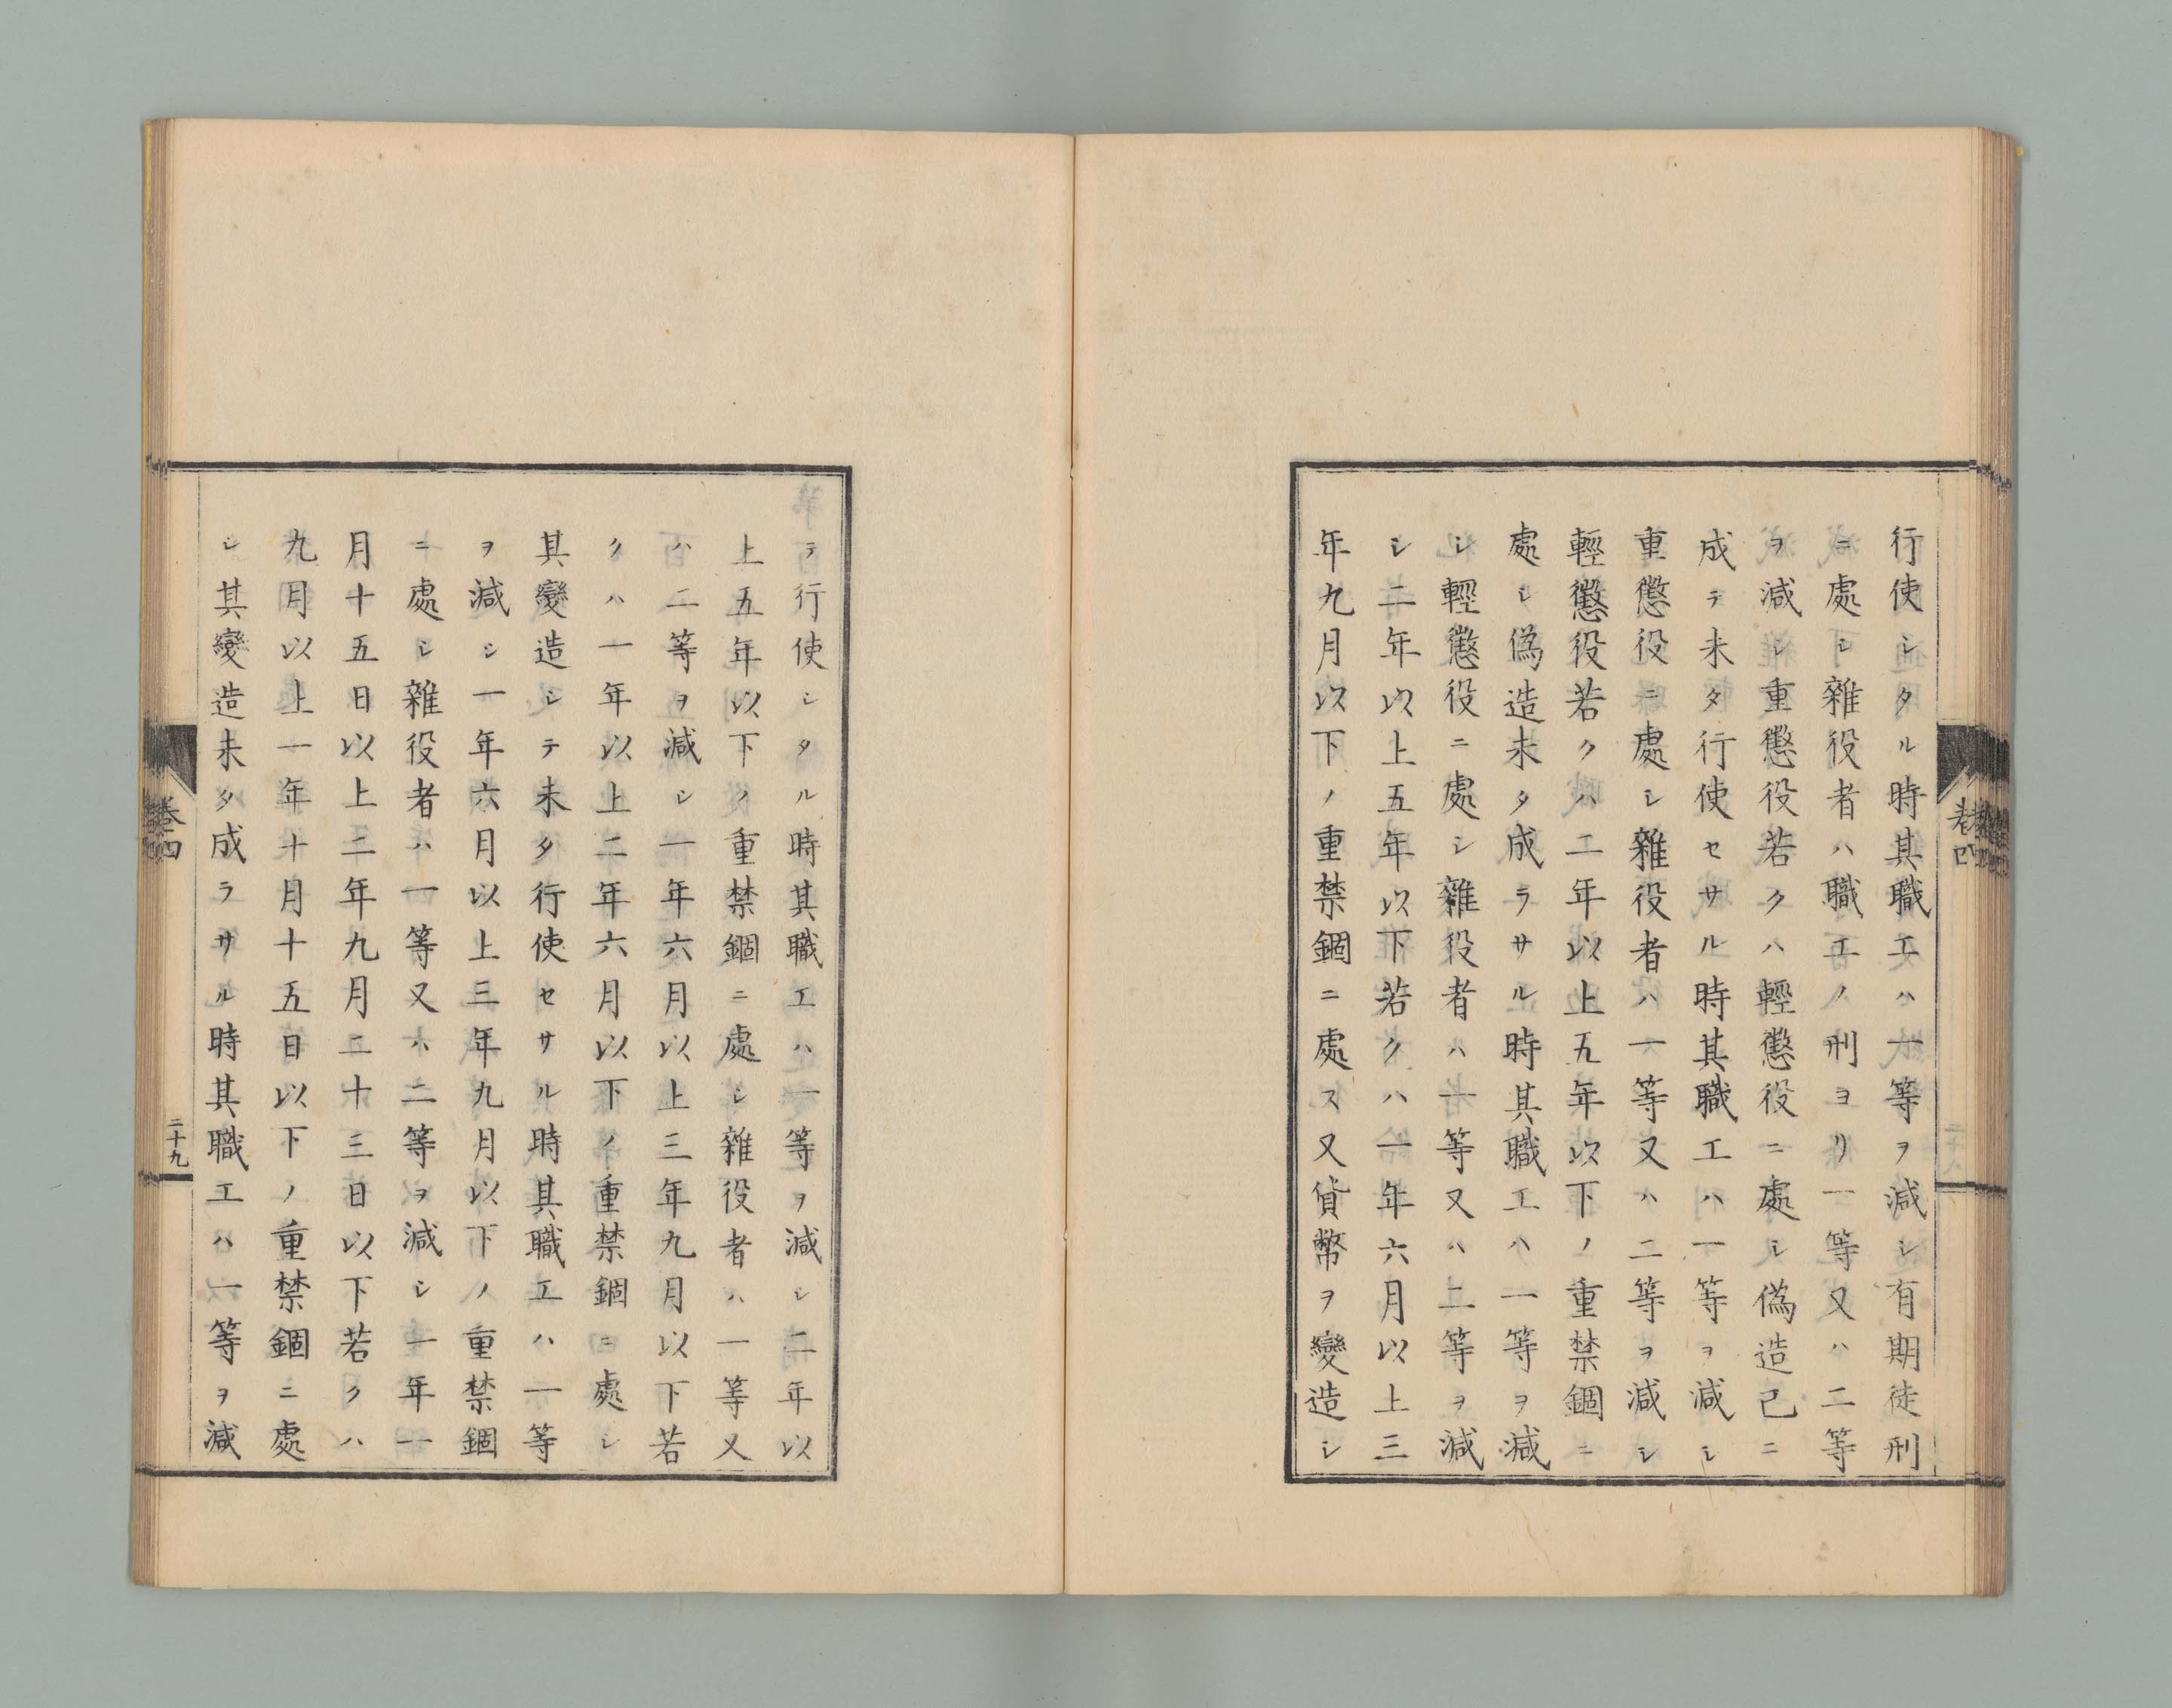 行使シタル時其職工ハ一等ヲ減シ有期徒刑
ニ處シ雜役者ハ職工ノ刑ヨリ一等又ハ二等
ヲ減シ重懲役若クハ輕懲役ニ處シ偽造已ニ
成テ未タ行使セサル時其職工ハ一等ヲ減シ
重懲役ニ處シ雜役者ハ一等又ハ二等ヲ減シ
輕懲役若クハ二年以上五年以下ノ重禁錮ニ
處シ偽造未タ成ラサル時其職工ハ一等ヲ減
シ輕懲役ニ處シ雜役者ハ一等又ハ二等ヲ減
シ二年以上五年以下若クハ一年六月以上三
年九月以下ノ重禁錮ニ處ス又貨幣ヲ變造シ
卷四
テ行使シタル時其職工ハ一等ヲ減シ二年以
上五年以下ノ重禁錮ニ處シ雜役者ハ一等又
ハ二等ヲ減シ一年六月以上三年九月以下若
クハ一年以上二年六月以下ノ重禁錮ニ處シ
其變造シテ未タ行使セサル時其職工ハ一等
ヲ減シ一年六月以上三年九月以下ノ重禁錮
ニ處シ雜役者ハ一等又ハ二等ヲ減シ一年一
月十五日以上二年九月二十三日以下若クハ
九月以上一年十月十五日以下ノ重禁錮ニ處
シ其變造未タ成ラサル時其職工ハ一等ヲ減
卷四
二十九